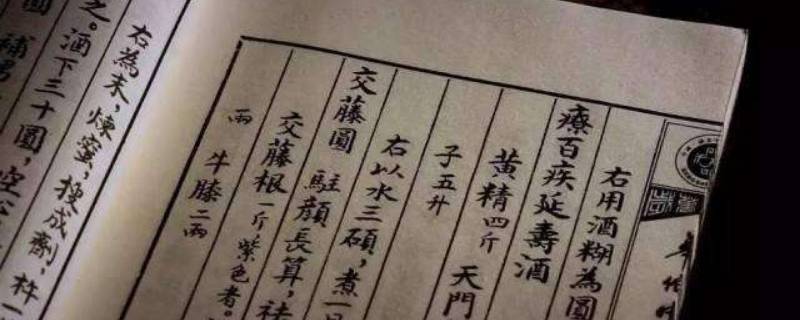 右用酒糊為圓
療百疾延壽酒
黃精四斤 天門
子五升
右以水三碩，煮一
交藤圓 駐顏長算，祛
交藤根一斤，紫色者。
牛膝二兩
右為末，煉蜜，搜成劑，杵一
之。酒下三十圓，空
圓 補